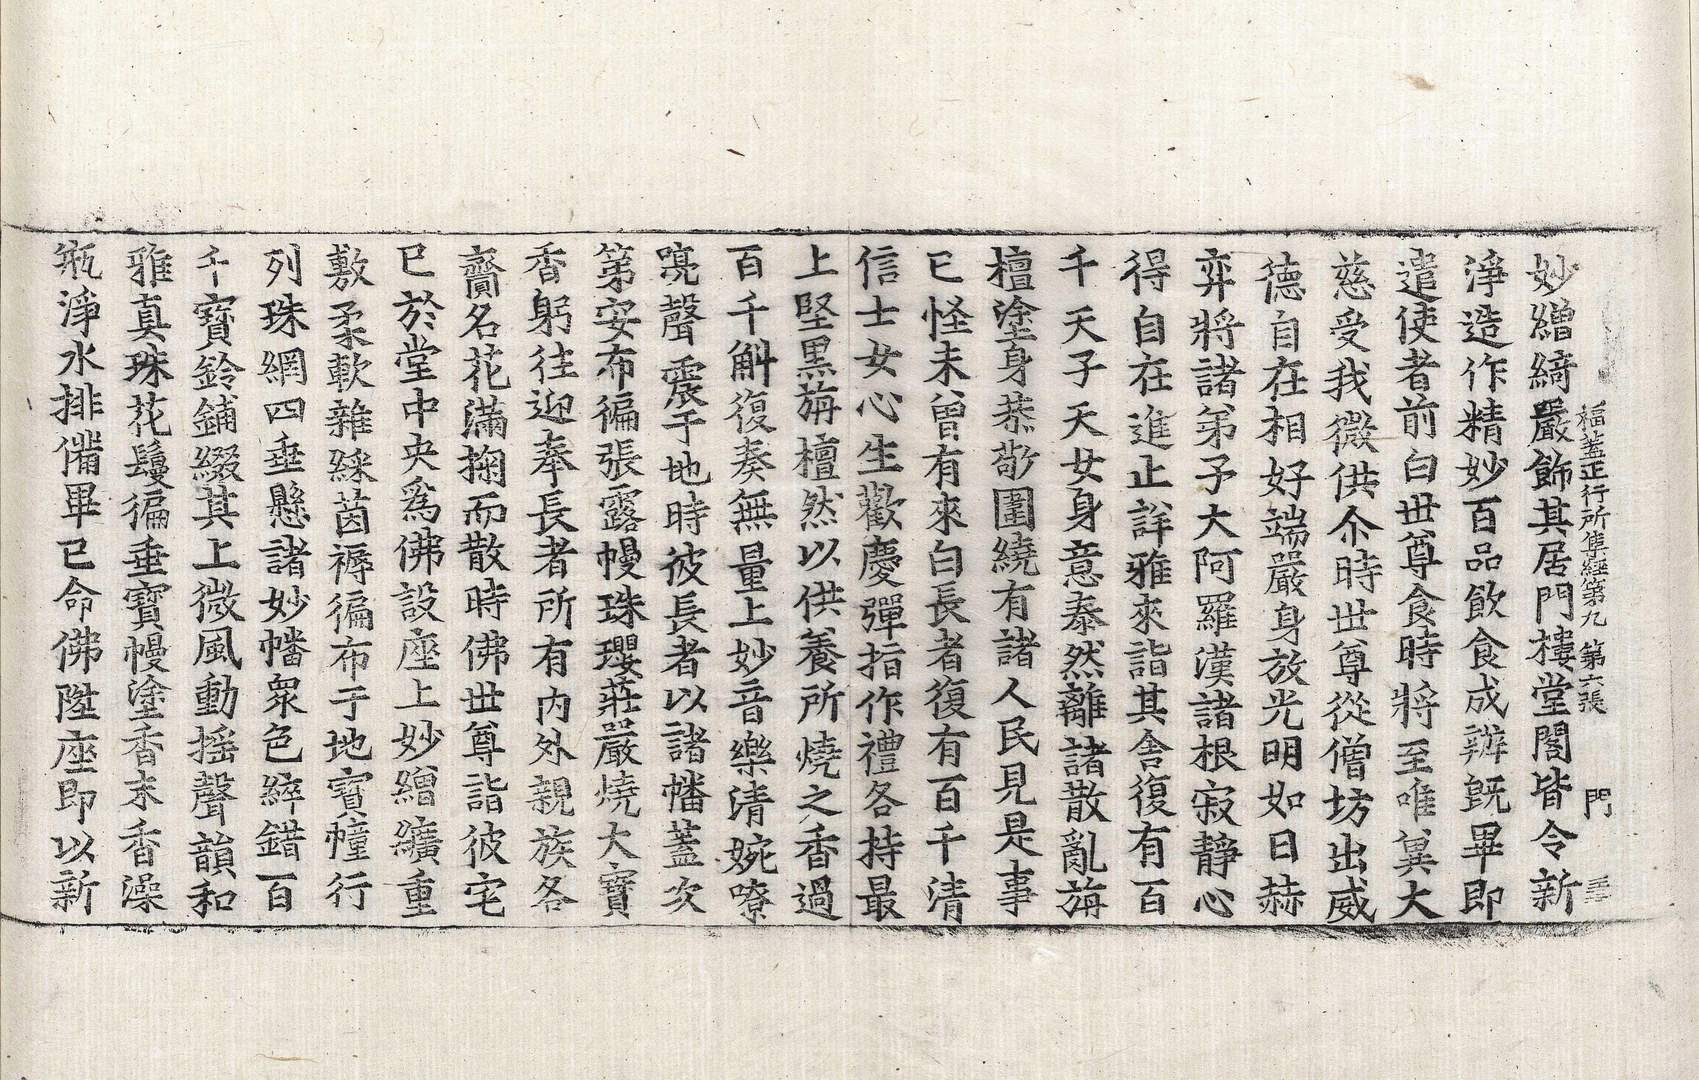 福蓋正行所集經第九 第六張 門
妙繒綺嚴飾其居門樓堂閣皆令新
淨造作精妙百品飲食成辦既畢即
遣使者前白世尊食時將至唯兾大
慈受我微供尒時世尊從僧坊出威
德自在相好端嚴身放光明如日赫
弈將諸弟子大阿羅漢諸根寂靜心
得自在進止詳雅來詣其舍復有百
千天子天女身意泰然離諸散亂旃
檀塗身恭敬圍繞有諸人民見是事
已怪未曾有來白長者復有百千清
信士女心生歡慶彈指作禮各持最
上堅黑旃檀然以供養所燒之香過
百千斛復奏無量上妙音樂清婉嘹
亮聲震于地時彼長者以諸幡蓋次
第安布徧張露幔珠瓔莊嚴燒大寶
香躬往迎奉長者所有內外親族各
齎名花滿掬而散時佛世尊詣彼宅
已於堂中央爲佛設座上妙繒纊重
敷柔軟雜綵茵褥徧布于地寶幢行
列珠網四垂懸諸妙幡衆色綷錯百
千寶鈴鋪綴其上微風動搖聲韻和
雅真珠花鬘徧垂寶幔塗香末香澡
瓶淨水排備畢已命佛陞座即以新